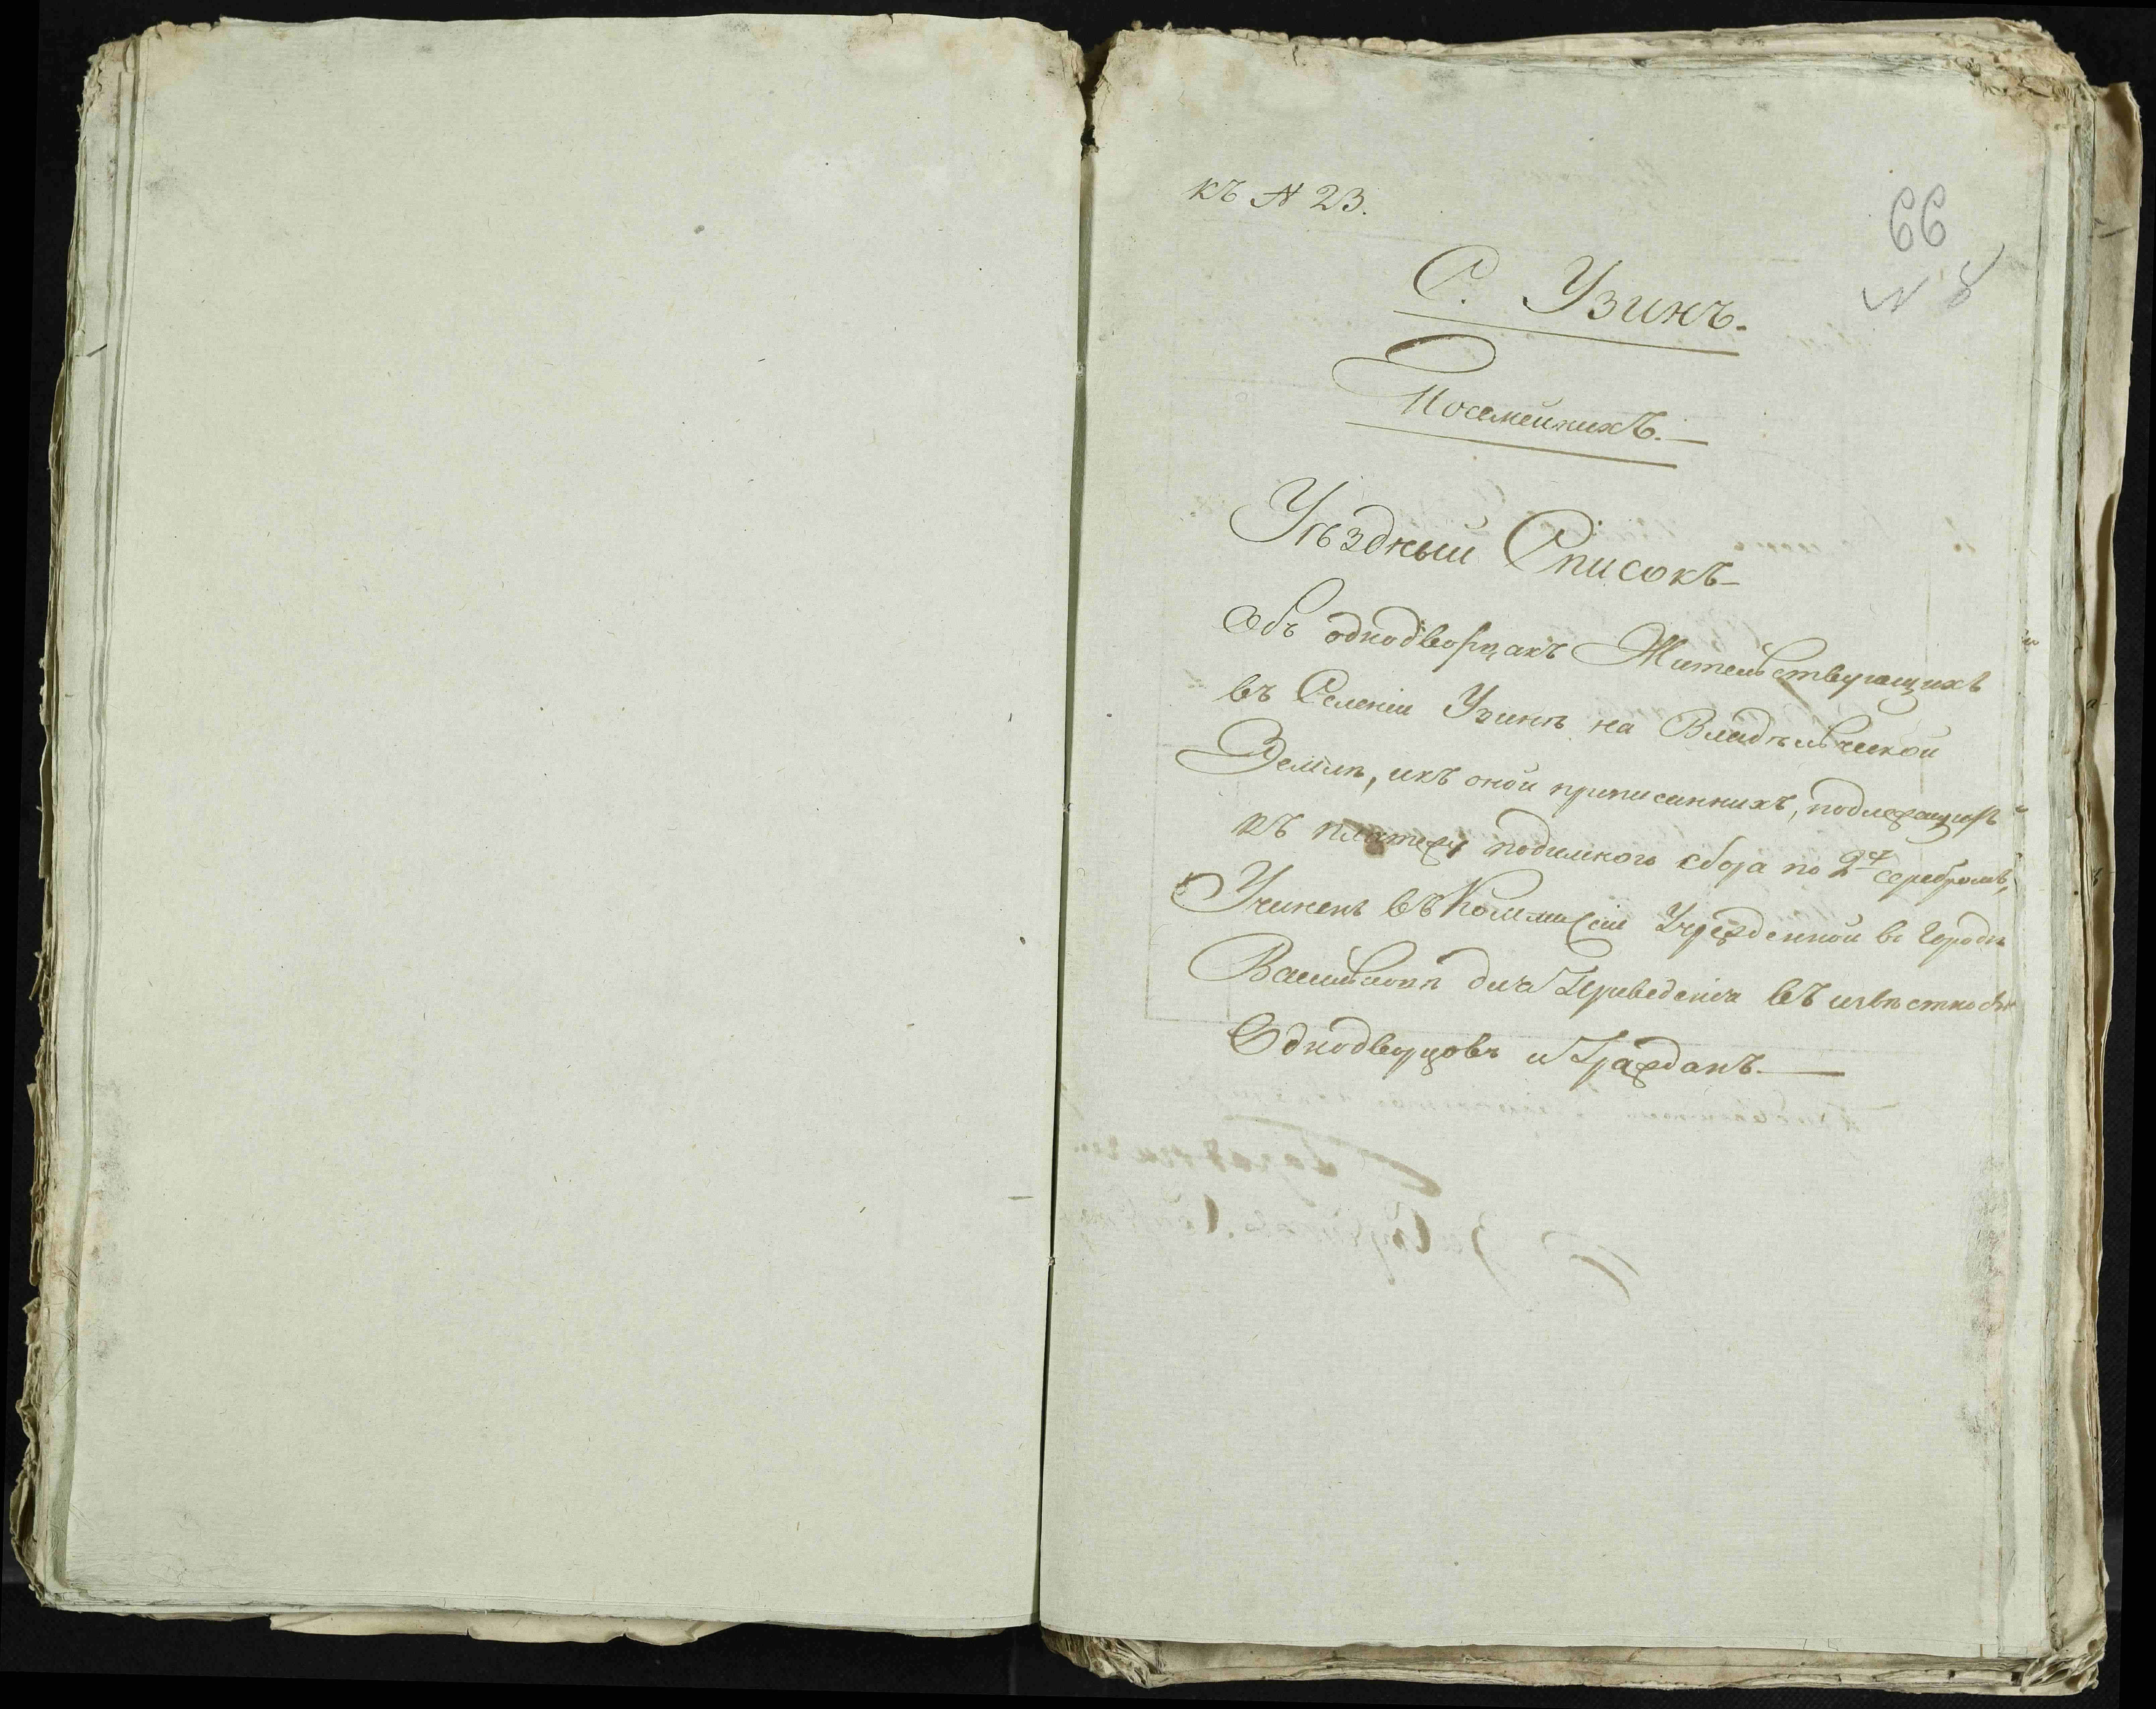 къ № 23.
66
№ 8
С. Узинъ.
Посемейнихъ.
Уѣздный Списокъ
Объ однодворцахъ Жительствующихъ
въ Селеніи Узинѣ на Владѣльческой
Землѣ, икъ оной приписанныхъ, подлежащихъ
къ платежу подымного сбора по 2 серебромъ,
Учиненъ въ Коммиссіи Учрежденной въ Городѣ
Васильковѣ для Приведенія въ извѣстность
Однодворцовъ и Гражданъ.